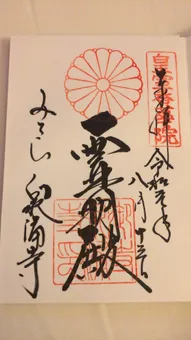 皇室香華院
奉拝 令和元年
八月十三日
霊明殿
みてら 泉涌寺